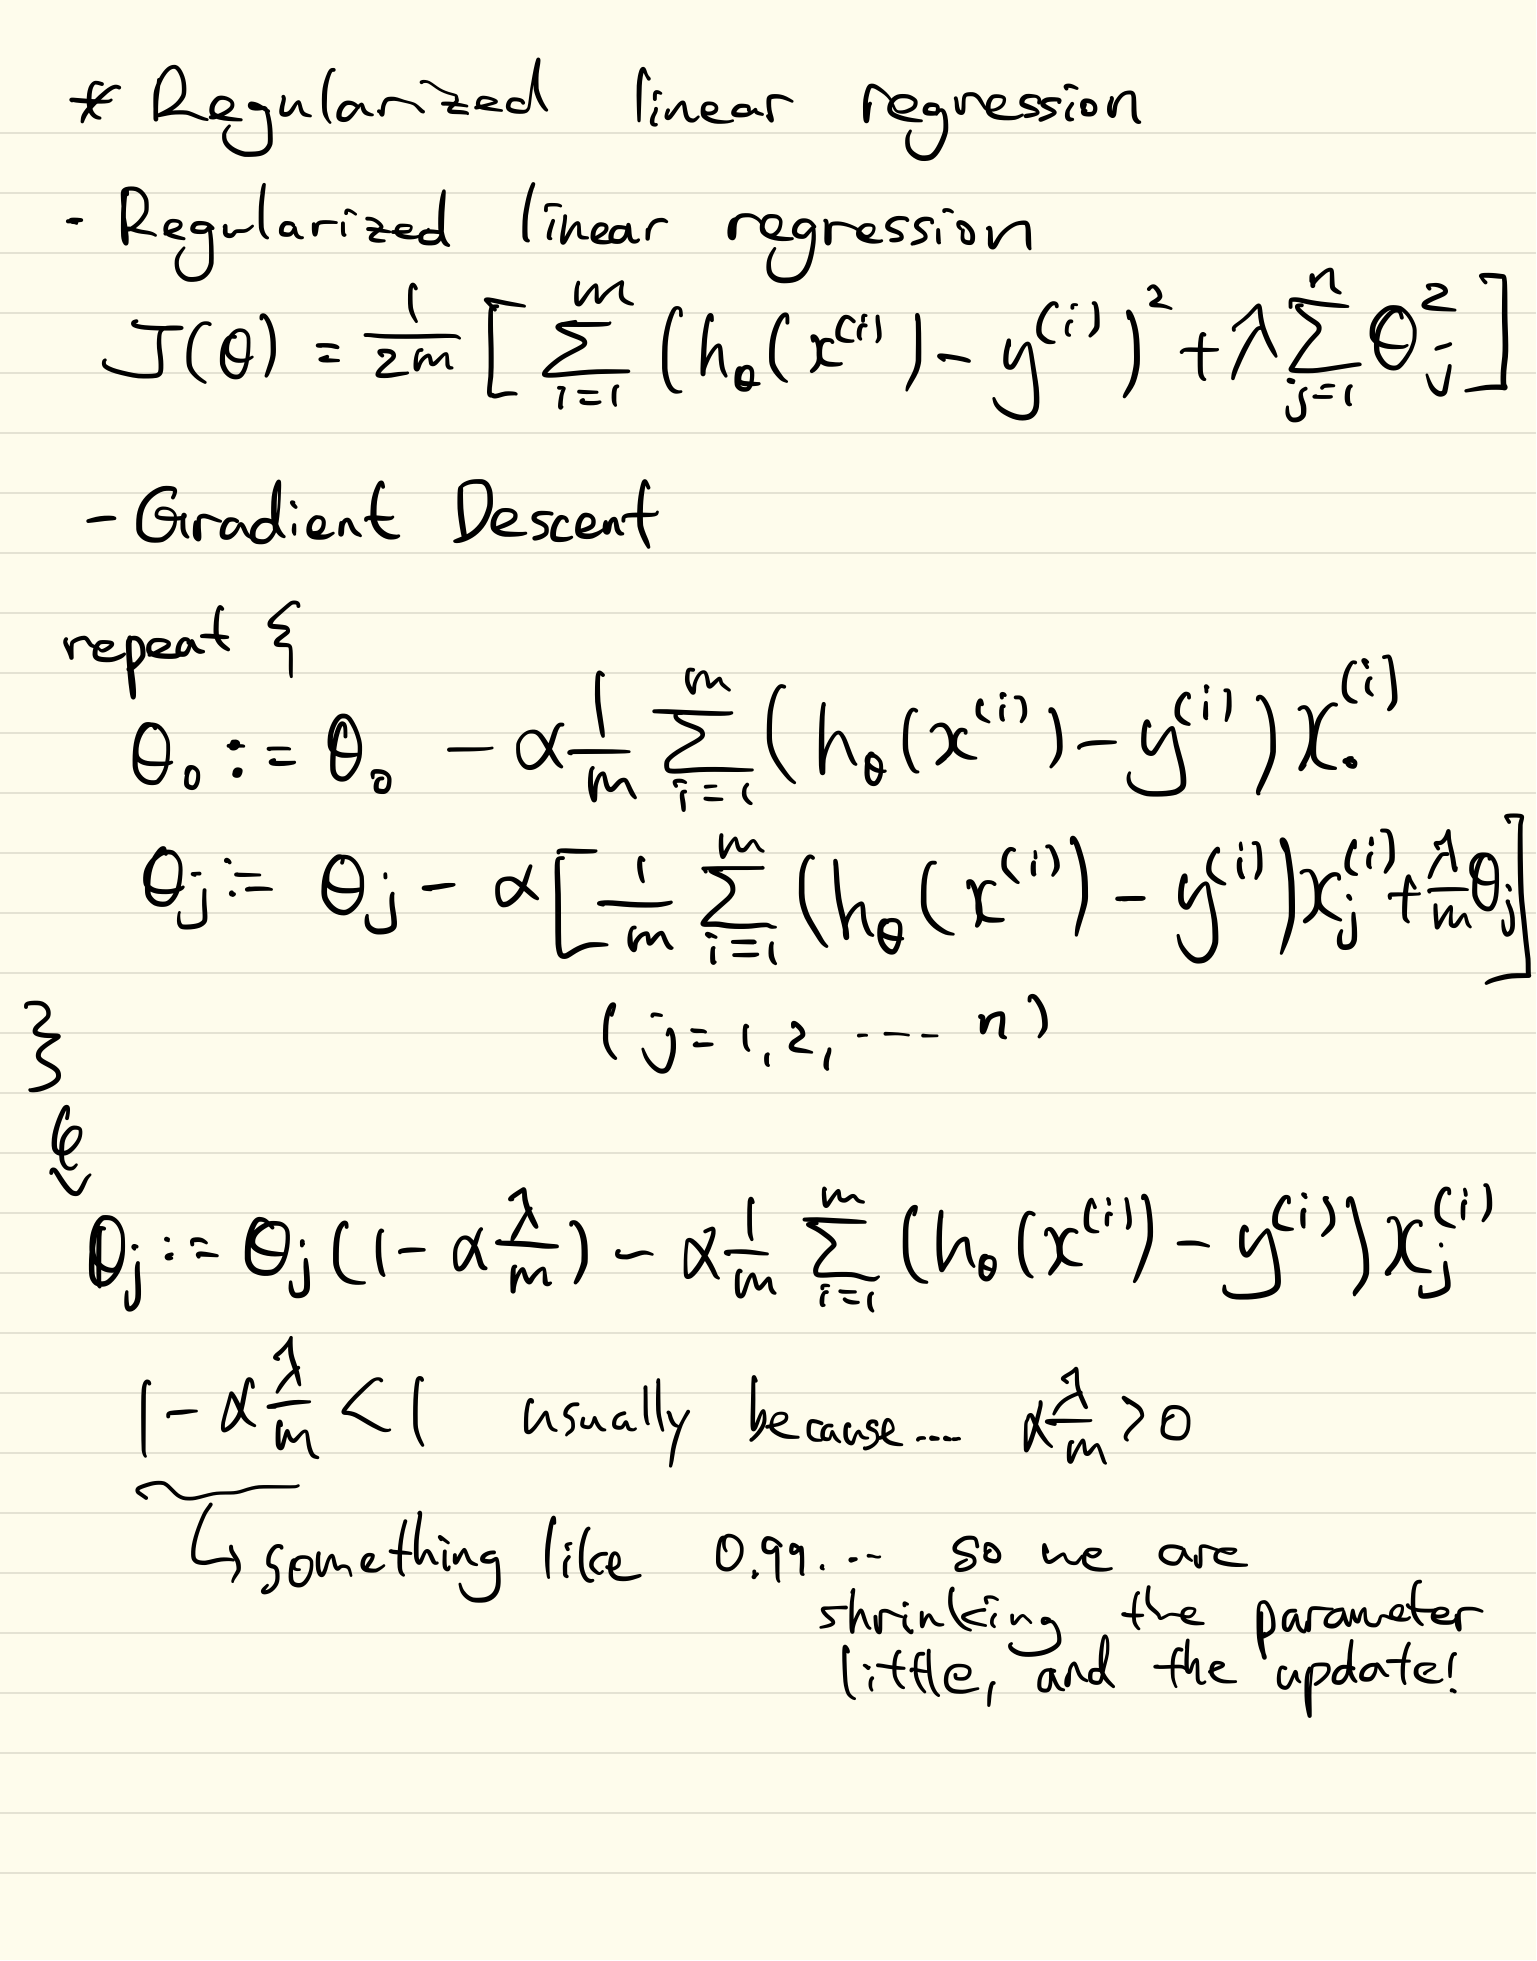 * Regularized linear regression
- Regularized linear regression
J(θ) = 1/2m [ Σ_{i=1}^{m} (h_θ(x^{(i)}) - y^{(i)})^2 + λ Σ_{j=1}^{n} θ_j^2 ]
- Gradient Descent
repeat {
θ_0 := θ_0 - α 1/m Σ_{i=1}^{m} (h_θ(x^{(i)}) - y^{(i)}) x_0^{(i)}
θ_j := θ_j - α [ 1/m Σ_{i=1}^{m} (h_θ(x^{(i)}) - y^{(i)}) x_j^{(i)} + λ/m θ_j ]
} (j = 1, 2, ---- n)
θ_j := θ_j (1 - α λ/m) - α 1/m Σ_{i=1}^{m} (h_θ(x^{(i)}) - y^{(i)}) x_j^{(i)}
1 - α λ/m < 1 usually because.... α λ/m > 0
↳ something like 0.99... so we are
shrinking the parameter
little, and the update!